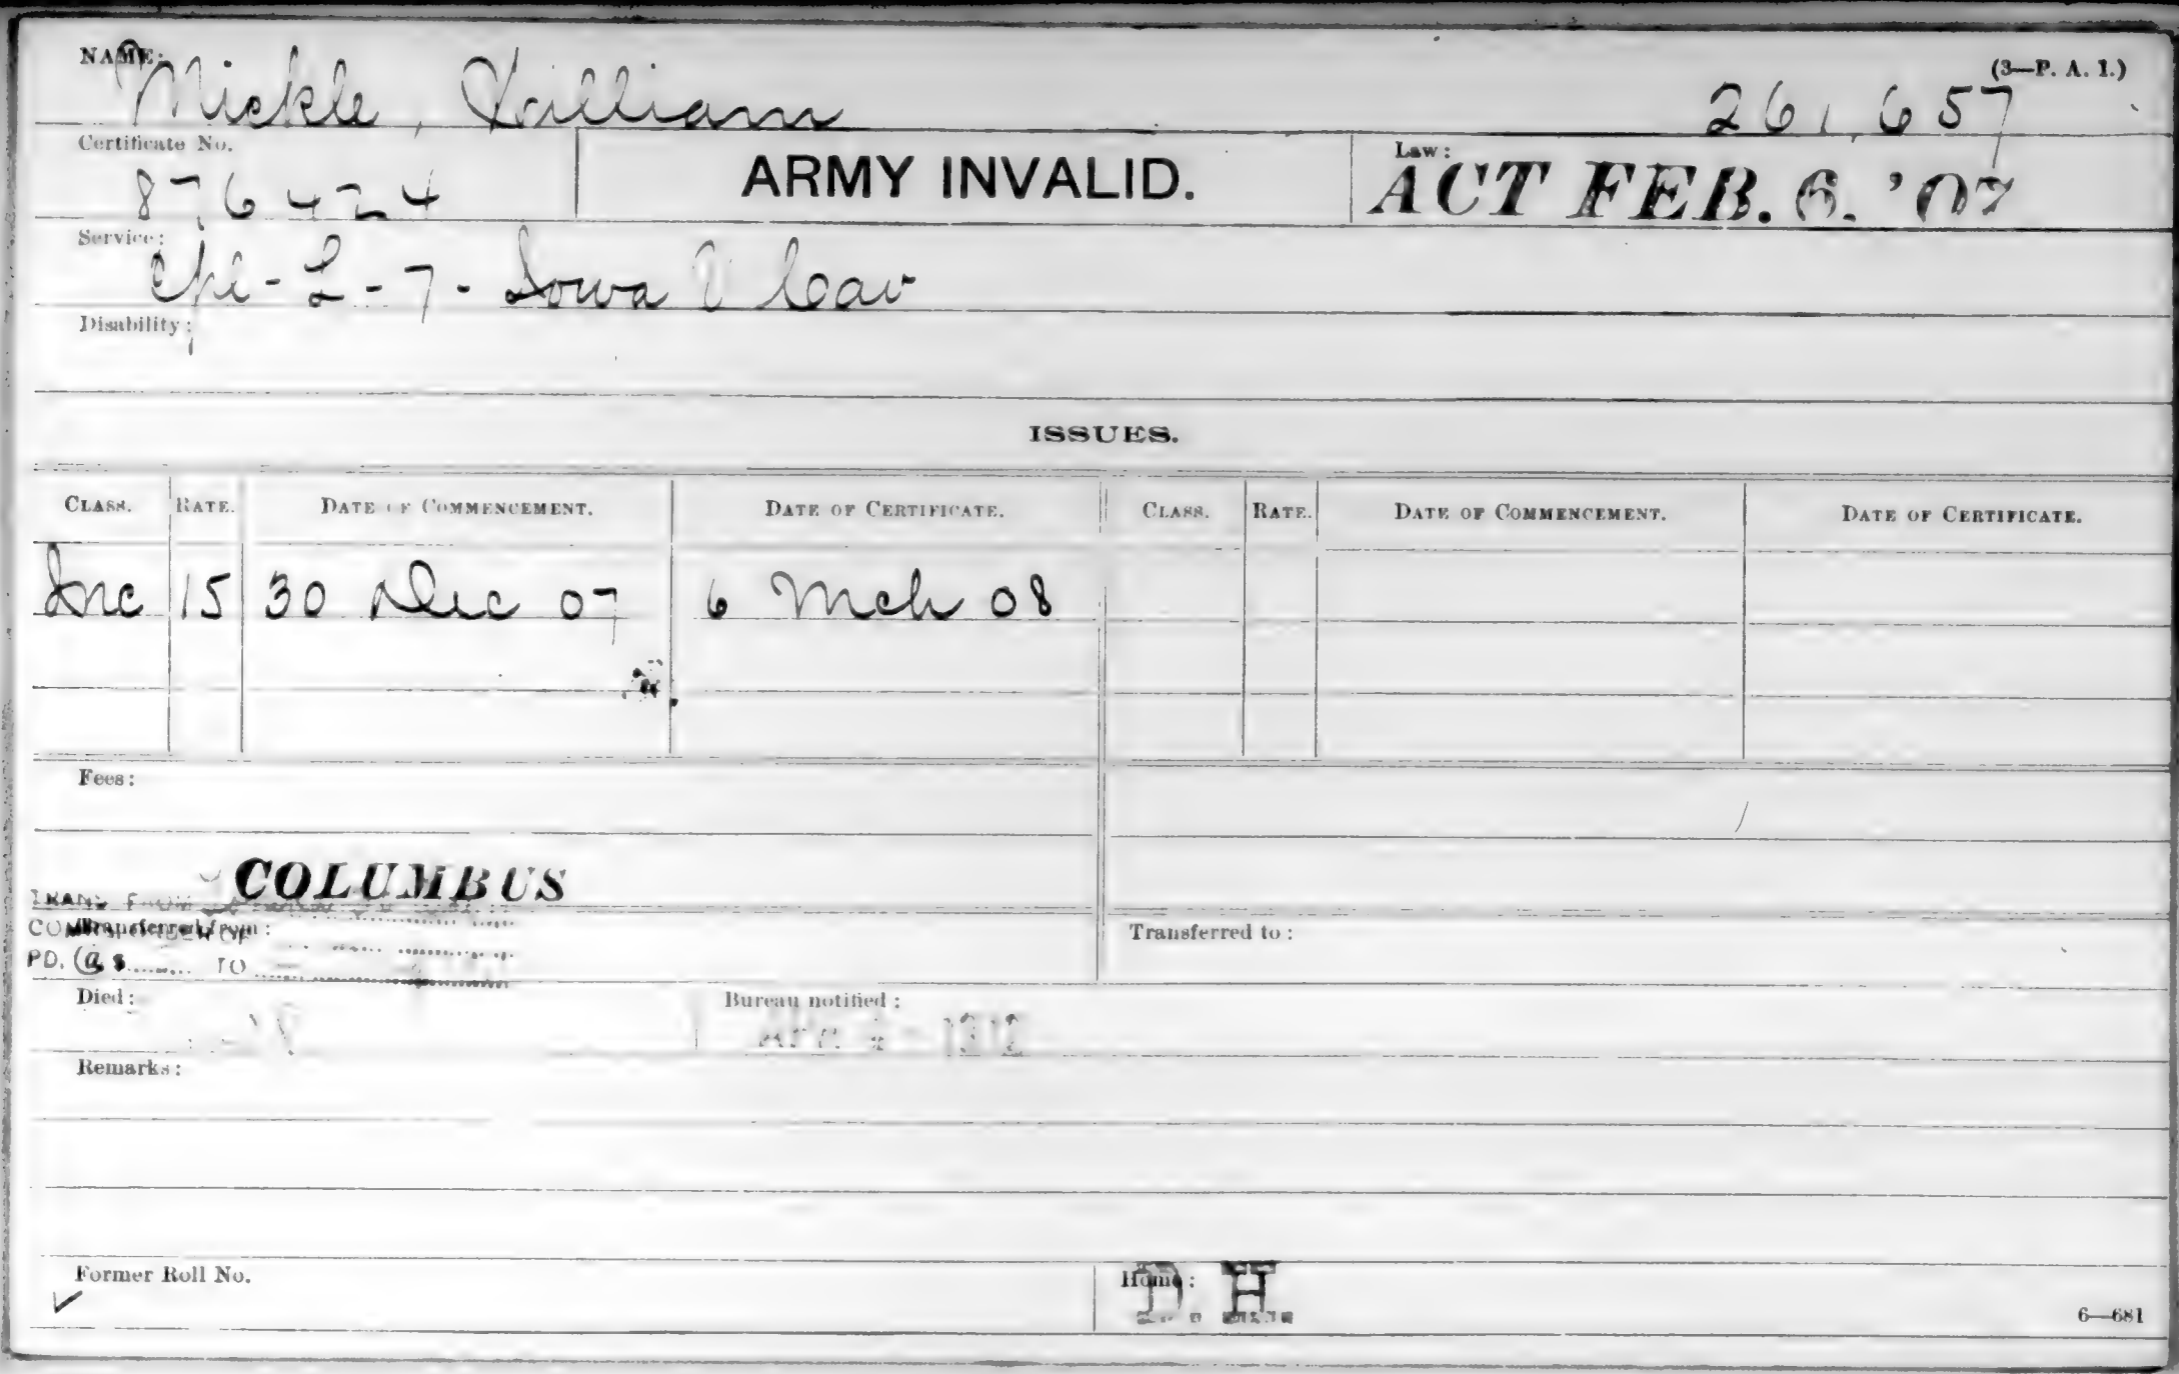 NAME:
(3—P. A. 1.)
Mickle, William 261,657
Certificate No.
876424
ARMY INVALID.
Law:
ACT FEB. 6. '07
Service:
Cpl - L - 7 - Iowa V Cav
Disability:
ISSUES.
CLASS. RATE. DATE OF COMMENCEMENT. DATE OF CERTIFICATE. CLASS. RATE. DATE OF COMMENCEMENT. DATE OF CERTIFICATE.
Inc 15 30 Dec 07 6 Mch 08
Fees:
COLUMBUS
TRANS FROM
Transferred from:
Transferred to:
PD. TO
Died:
Bureau notified:
Remarks:
Former Roll No.
Home:
D. H
6—681